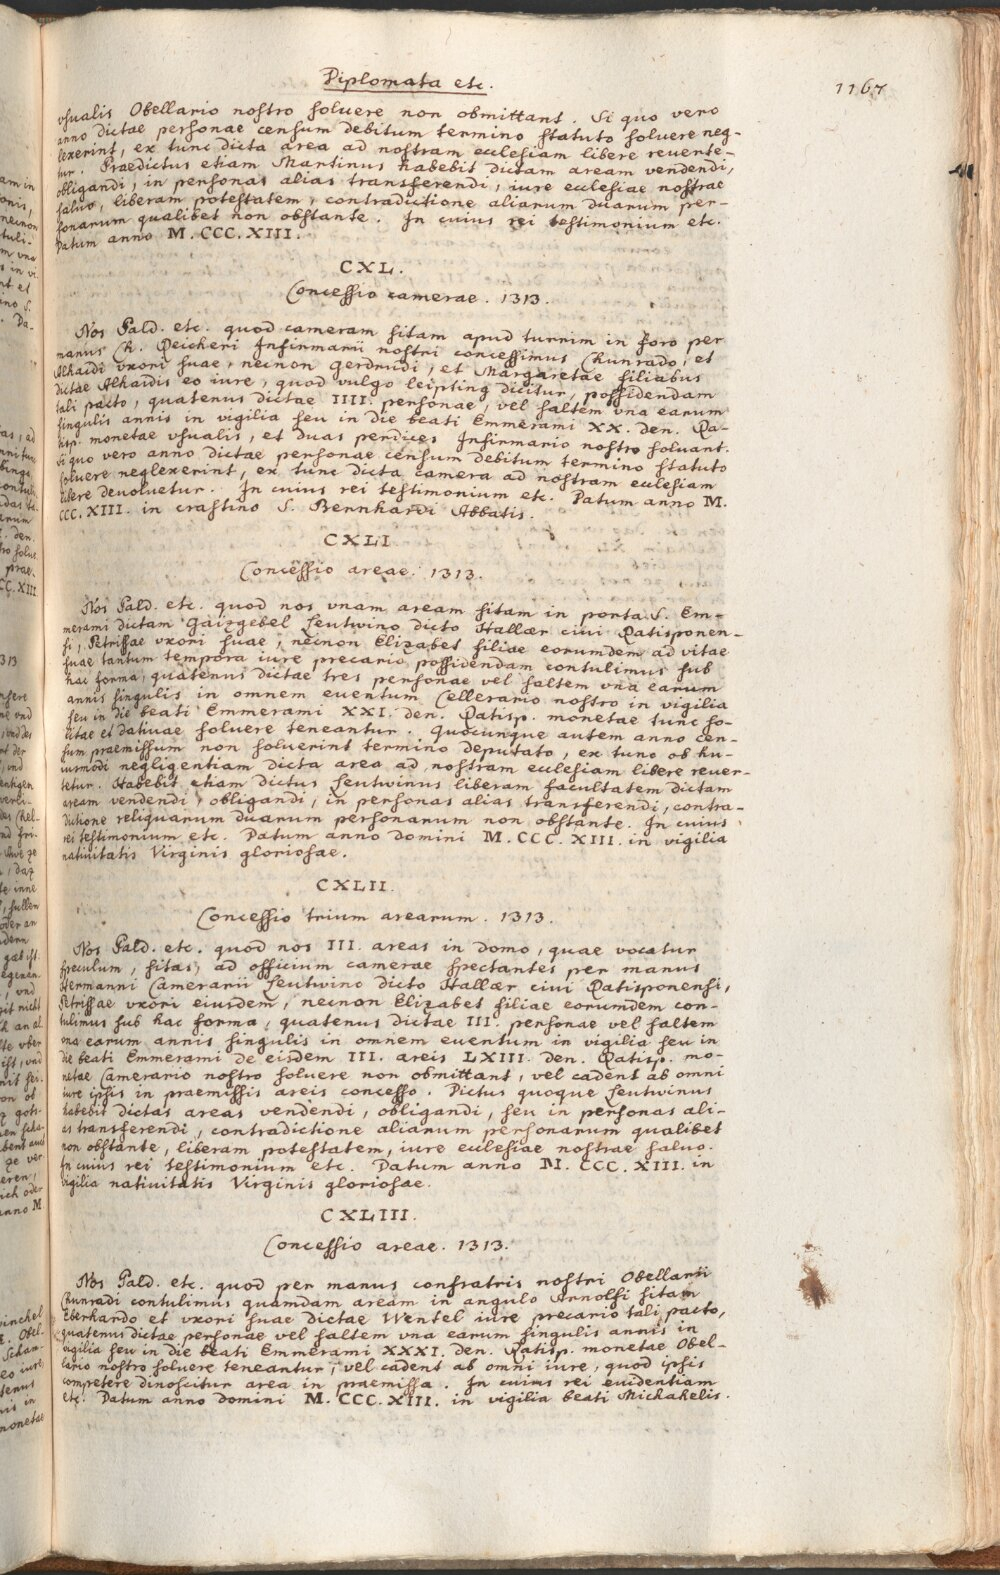 Diplomata etc.
1167
vsualis Obellario nostro soluere non obmittant. Si quo vero
anno dictae personae censum debitum termino statuto soluere neg-
lexerint, ex tunc dicta area ad nostram ecclesiam libere reuerte-
tur. Praedictus etiam Martinus habebit dictam aream vendendi,
obligandi, in personas alias transferendi, iure ecclesiae nostrae
saluo, liberam potestatem, contradictione aliarum duarum per-
sonarum qualibet non obstante. In cuius rei testimonium etc.
Datum anno M.CCC.XIII.
CXL.
Concessio camerae. 1313.
Nos Bald. etc. quod cameram sitam apud turrim in foro per
manus Ch. Deicheri Infirmarii nostri concessimus Chunrado, et
Alhaidi vxori suae, necnon Gerdrudi, et Margaretae filiabus
dictae Alhaidis eo iure, quod vulgo leipting dicitur, possidendam
tali pacto, quatenus dictae IIII. personae, vel saltem vna earum
singulis annis in vigilia seu in die beati Emmerami XX. den. Ra-
tisp. monetae vsualis, et duas perdices Infirmario nostro soluant.
Si quo vero anno dictae personae censum debitum termino statuto
soluere neglexerint, ex tunc dicta camera ad nostram ecclesiam
libere deuoluetur. In cuius rei testimonium etc. Datum anno M.
CCC.XIII. in crastino S. Bernhardi Abbatis.
CXLI
Concessio areae. 1313.
Nos Bald. etc. quod nos vnam aream sitam in porta S. Em-
merami dictam Gaizgebel Leutwino dicto Hallær ciui Ratisponen-
si, Petrissae vxori suae, necnon Elizabet filiae eorumdem ad vitae
suae tantum tempora iure precario possidendam contulimus sub
hac forma, quatenus dictae tres personae vel saltem vna earum
annis singulis in omnem euentum Cellerario nostro in vigilia
seu in die beati Emmerami XXI. den. Ratisp. monetae tunc so-
litae et datiuae soluere teneantur. Quocunque autem anno cen-
sum praemissum non soluerint termino deputato, ex tunc ob hu-
iusmodi negligentiam dicta area ad nostram ecclesiam libere reuer-
tetur. Habebit etiam dictus Leutwinus liberam facultatem dictam
aream vendendi, obligandi, in personas alias transferendi, contra-
dictione reliquarum duarum personarum non obstante. In cuius
rei testimonium etc. Datum anno domini M.CCC.XIII. in vigilia
natiuitatis Virginis gloriosae.
CXLII.
Concessio trium arearum. 1313.
Nos Bald. etc. quod nos III. areas in domo, quae vocatur
speculum, sitas, ad officium camerae spectantes per manus
Hermanni Camerarii Leutwino dicto Hallær ciui Ratisponensi,
Petrissae vxori eiusdem, necnon Elizabet filiae eorumdem con-
tulimus sub hac forma, quatenus dictae III. personae vel saltem
vna earum annis singulis in omnem euentum in vigilia seu in
die beati Emmerami de eisdem III. areis LXIII. den. Ratisp. mo-
netae Camerario nostro soluere non obmittant, vel cadent ab omni
iure ipsis in praemissis areis concesso. Dictus quoque Leutwinus
habebit dictas areas vendendi, obligandi, seu in personas ali-
as transferendi, contradictione aliarum personarum qualibet
non obstante, liberam potestatem, iure ecclesiae nostrae saluo.
In cuius rei testimonium etc. Datum anno M.CCC.XIII. in
vigilia natiuitatis Virginis gloriosae.
CXLIII.
Concessio areae. 1313.
Nos Bald. etc. quod per manus confratris nostri Obellarii
Chunradi contulimus quamdam aream in angulo Arnolfi sitam
Eberhardo et vxori suae dictae Wentel iure precario tali pacto,
quatenus dictae personae vel saltem vna earum singulis annis in
vigilia seu in die beati Emmerami XXXI. den. Ratisp. monetae Obel-
lario nostro soluere teneantur, vel cadent ab omni iure, quod ipsis
competere dinoscitur area in praemissa. In cuius rei euidentiam
etc. Datum anno domini M.CCC.XIII. in vigilia beati Michahelis.